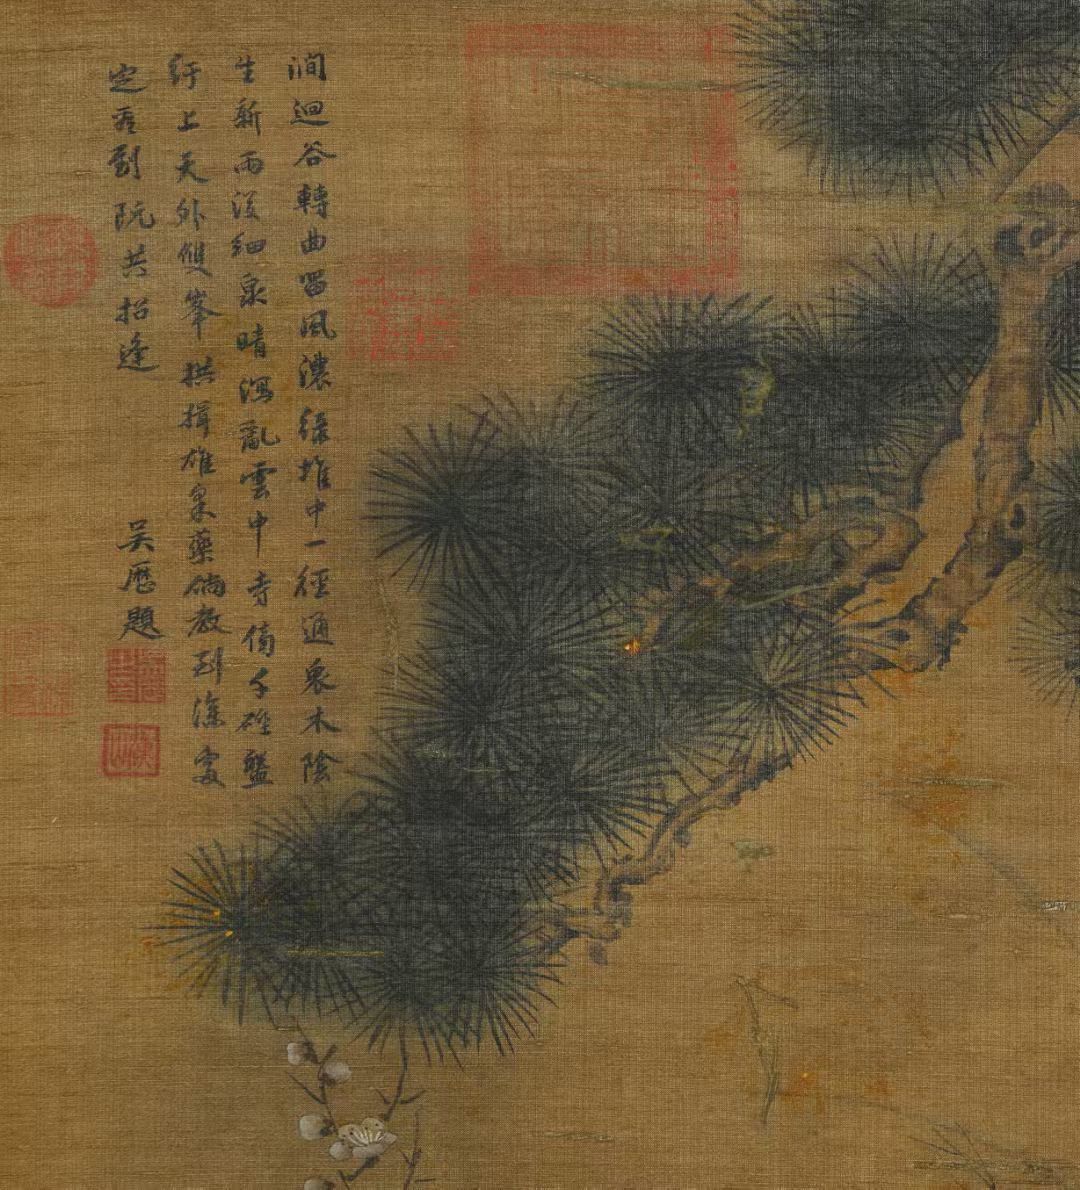 澗迴谷轉曲留風濃綠堆中一徑通衆木陰
生新雨後細泉晴瀉亂雲中寺傍千磴盤
紆上天外雙峯拱揖雄采藥倘教到深處
定看劉阮共招逢
吳歷題